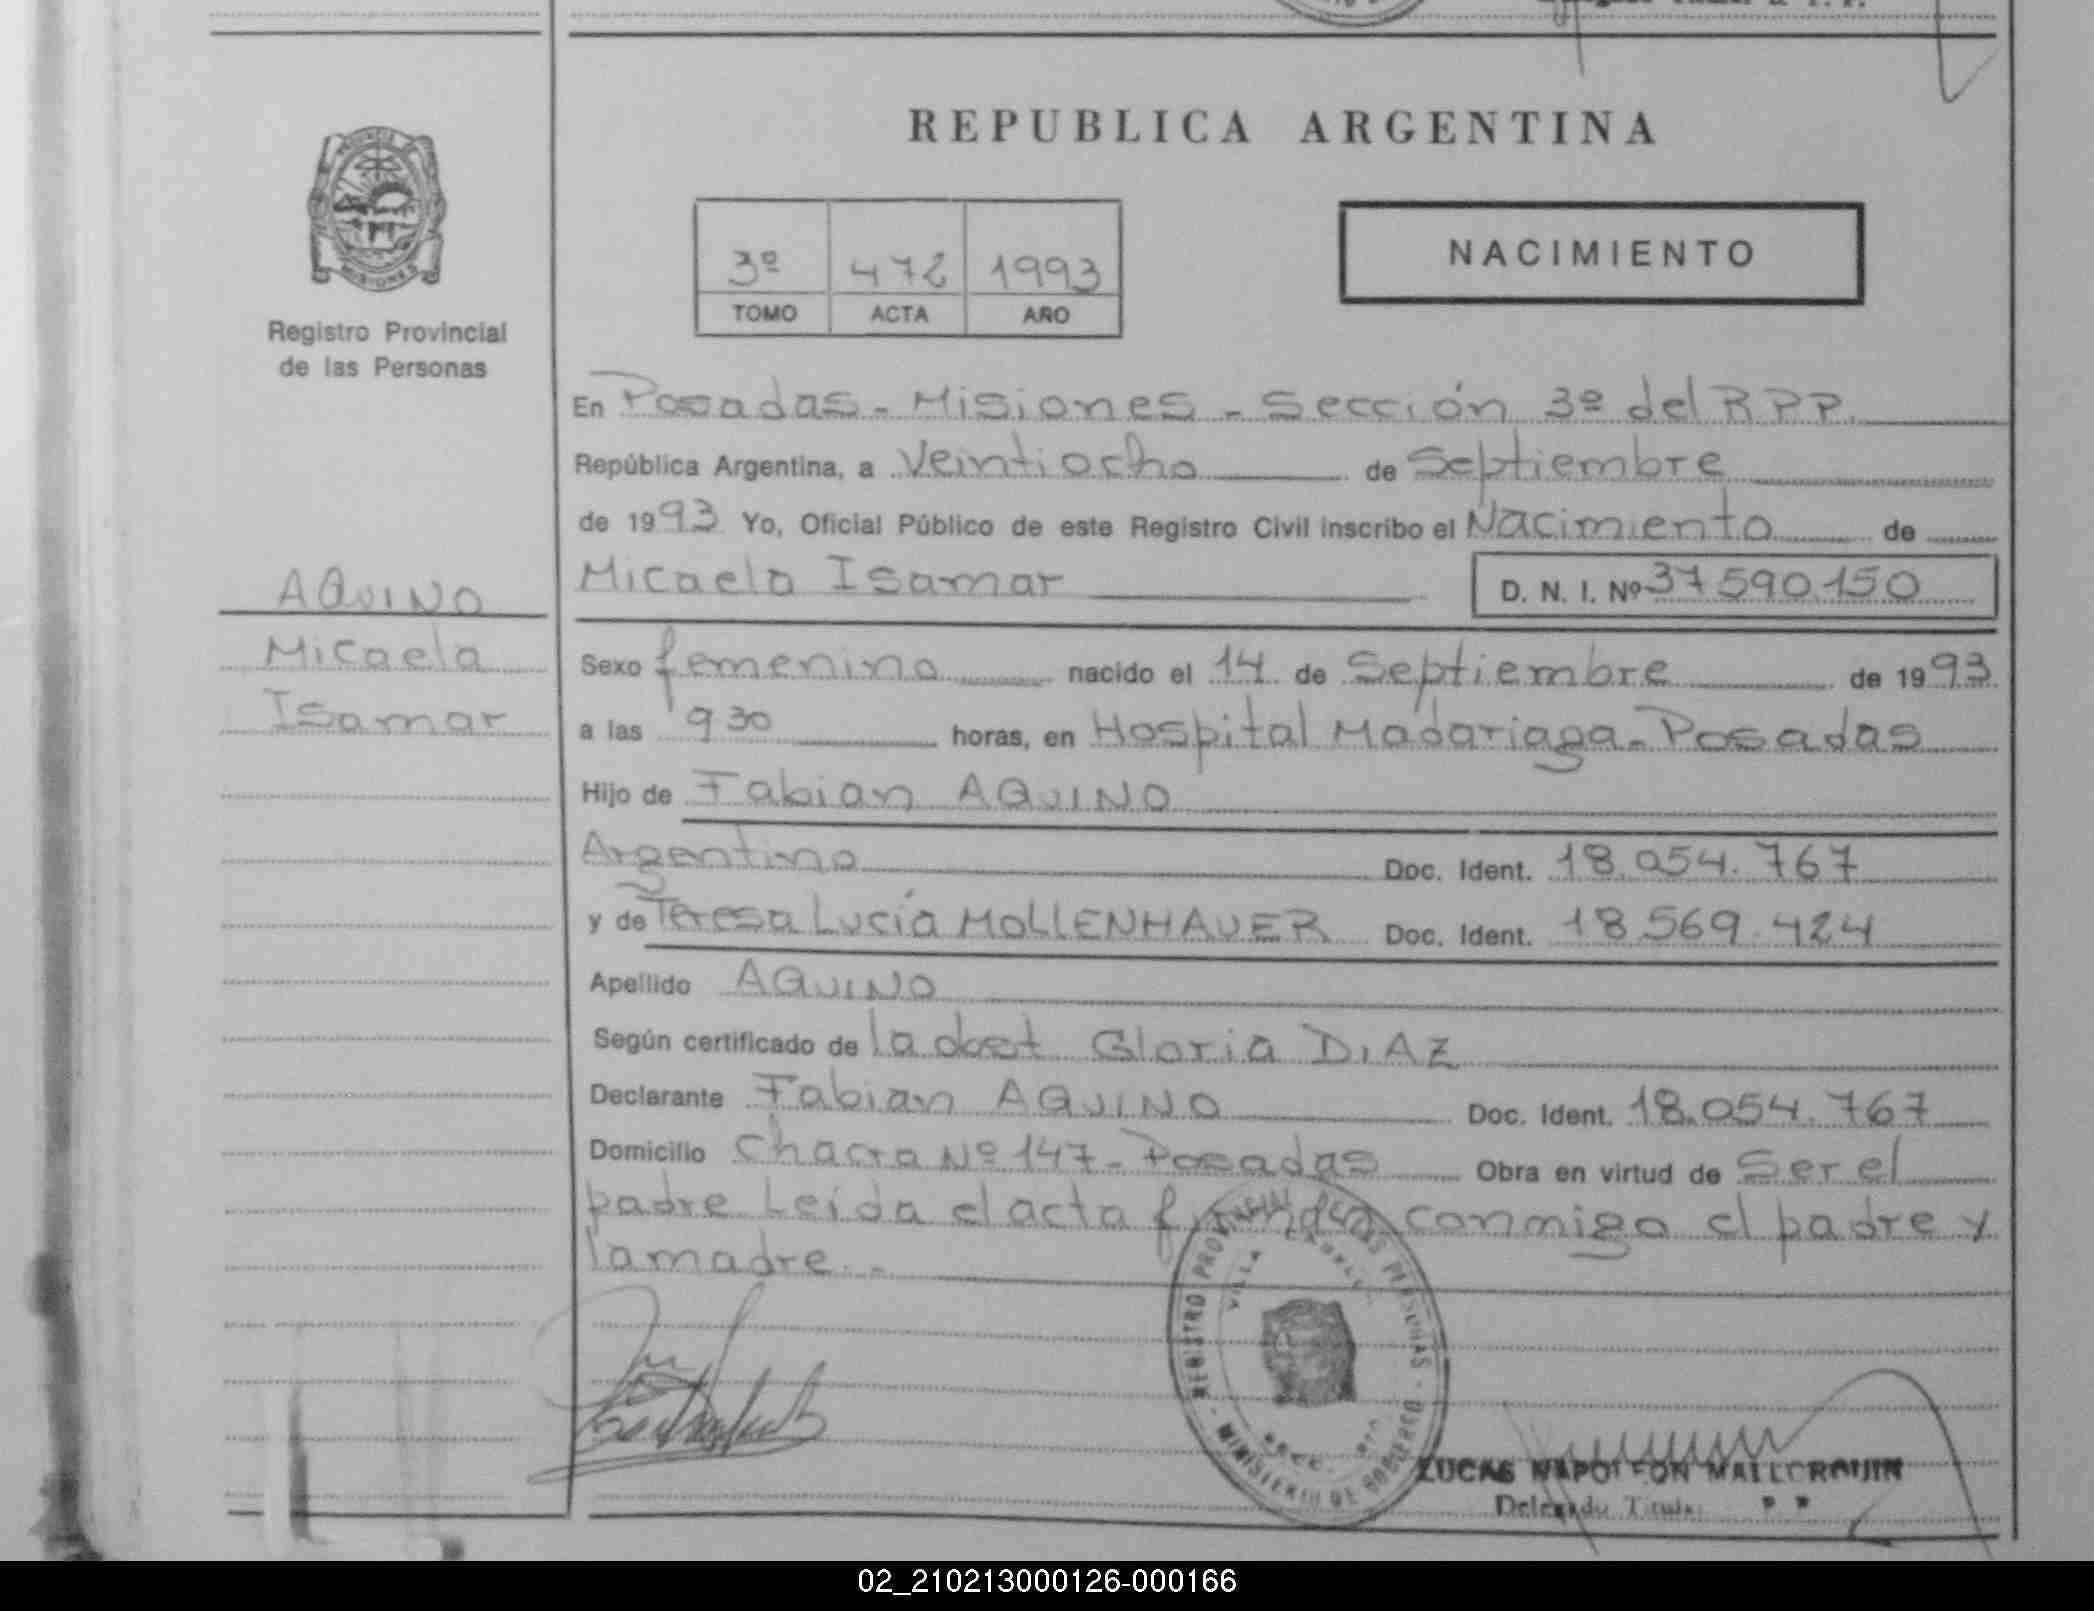 REPUBLICA ARGENTINA
3º 472 1993
TOMO ACTA AÑO
NACIMIENTO
PROVINCIA DE
MISIONES
Registro Provincial
de las Personas
AQUINO
Micaela
Isamar
En Posadas - Misiones - Sección 3º del R.P.P.
República Argentina, a Veintiocho de Septiembre
de 1993 Yo, Oficial Público de este Registro Civil inscribo el Nacimiento de
Micaela Isamar D. N. I. Nº 37590.150
Sexo femenino nacido el 14 de Septiembre de 1993
a las 9 30 horas, en Hospital Madariaga - Posadas
Hijo de Fabian AQUINO
Argentino Doc. Ident. 18.054.767
y de Teresa Lucía MOLLENHAUER Doc. Ident. 18.569.424
Apellido AQUINO
Según certificado de la obst Gloria DIAZ
Declarante Fabian AQUINO Doc. Ident. 18.054.767
Domicilio Chacra Nº 147 - Posadas Obra en virtud de Ser el
padre Leída el acta firman conmigo el padre y
la madre. -
REGISTRO PROVINCIAL DE LAS PERSONAS - MINISTERIO DE GOBIERNO -
VILLA
LUCAS NAPOLEON MALLORQUIN
Delegado Titular
02_210213000126-000166